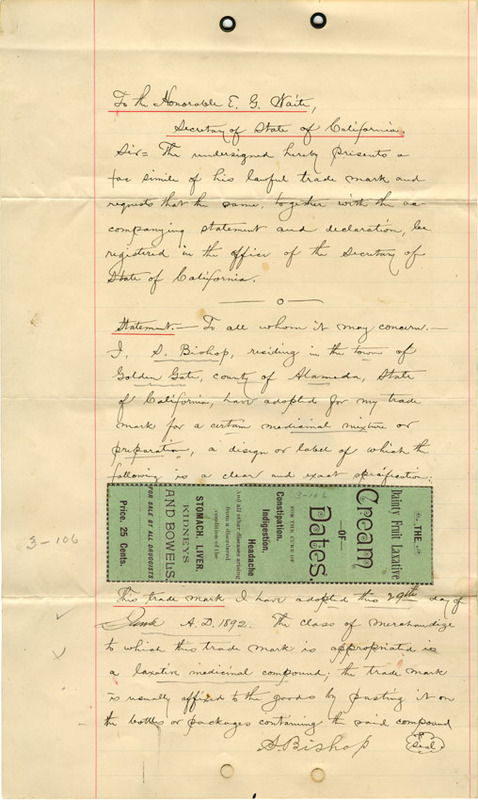 To the Honorable E. G. Waite,
Secretary of State of California.
Sir = The undersigned hereby presents a
fac simile of his lawful trade mark and
requests that the same, together with the ac-
companying statement and declaration, be
registered in the office of the Secretary of
State of California.
Statement. — To all whom it may concern. —
I, S. Bishop, residing in the town of
Golden Gate, county of Alameda, State
of California, have adopted for my trade
mark for a certain medicinal mixture or
preparation, a design or label of which the
following is a clear and exact specification:
THE
Dainty Fruit Laxative
Cream
—OF—
Dates.
3-106
FOR THE CURE OF
Constipation,
Indigestion,
Headache
And all other diseases arising
from a disordered
condition of the
STOMACH, LIVER,
KIDNEYS
AND BOWELS.
FOR SALE BY ALL DRUGGISTS
Price, 25 Cents.
3-106
This trade mark I have adopted this 29th day of
June A.D. 1892. The class of Merchandize
to which this trade mark is appropriated is
a laxative medicinal compound; the trade mark
is usually affixed to the goods by pasting it on
the bottles or packages containing the said compound
S. Bishop Seal